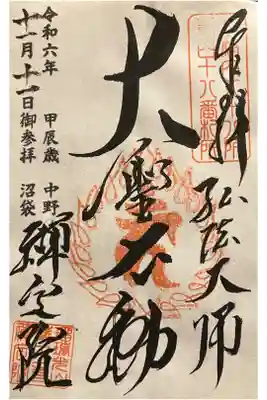 奉拝 弘法大師
大聖不動
令和六年 甲辰歳 中野
十一月十一日御参拝 沼袋
禪定院